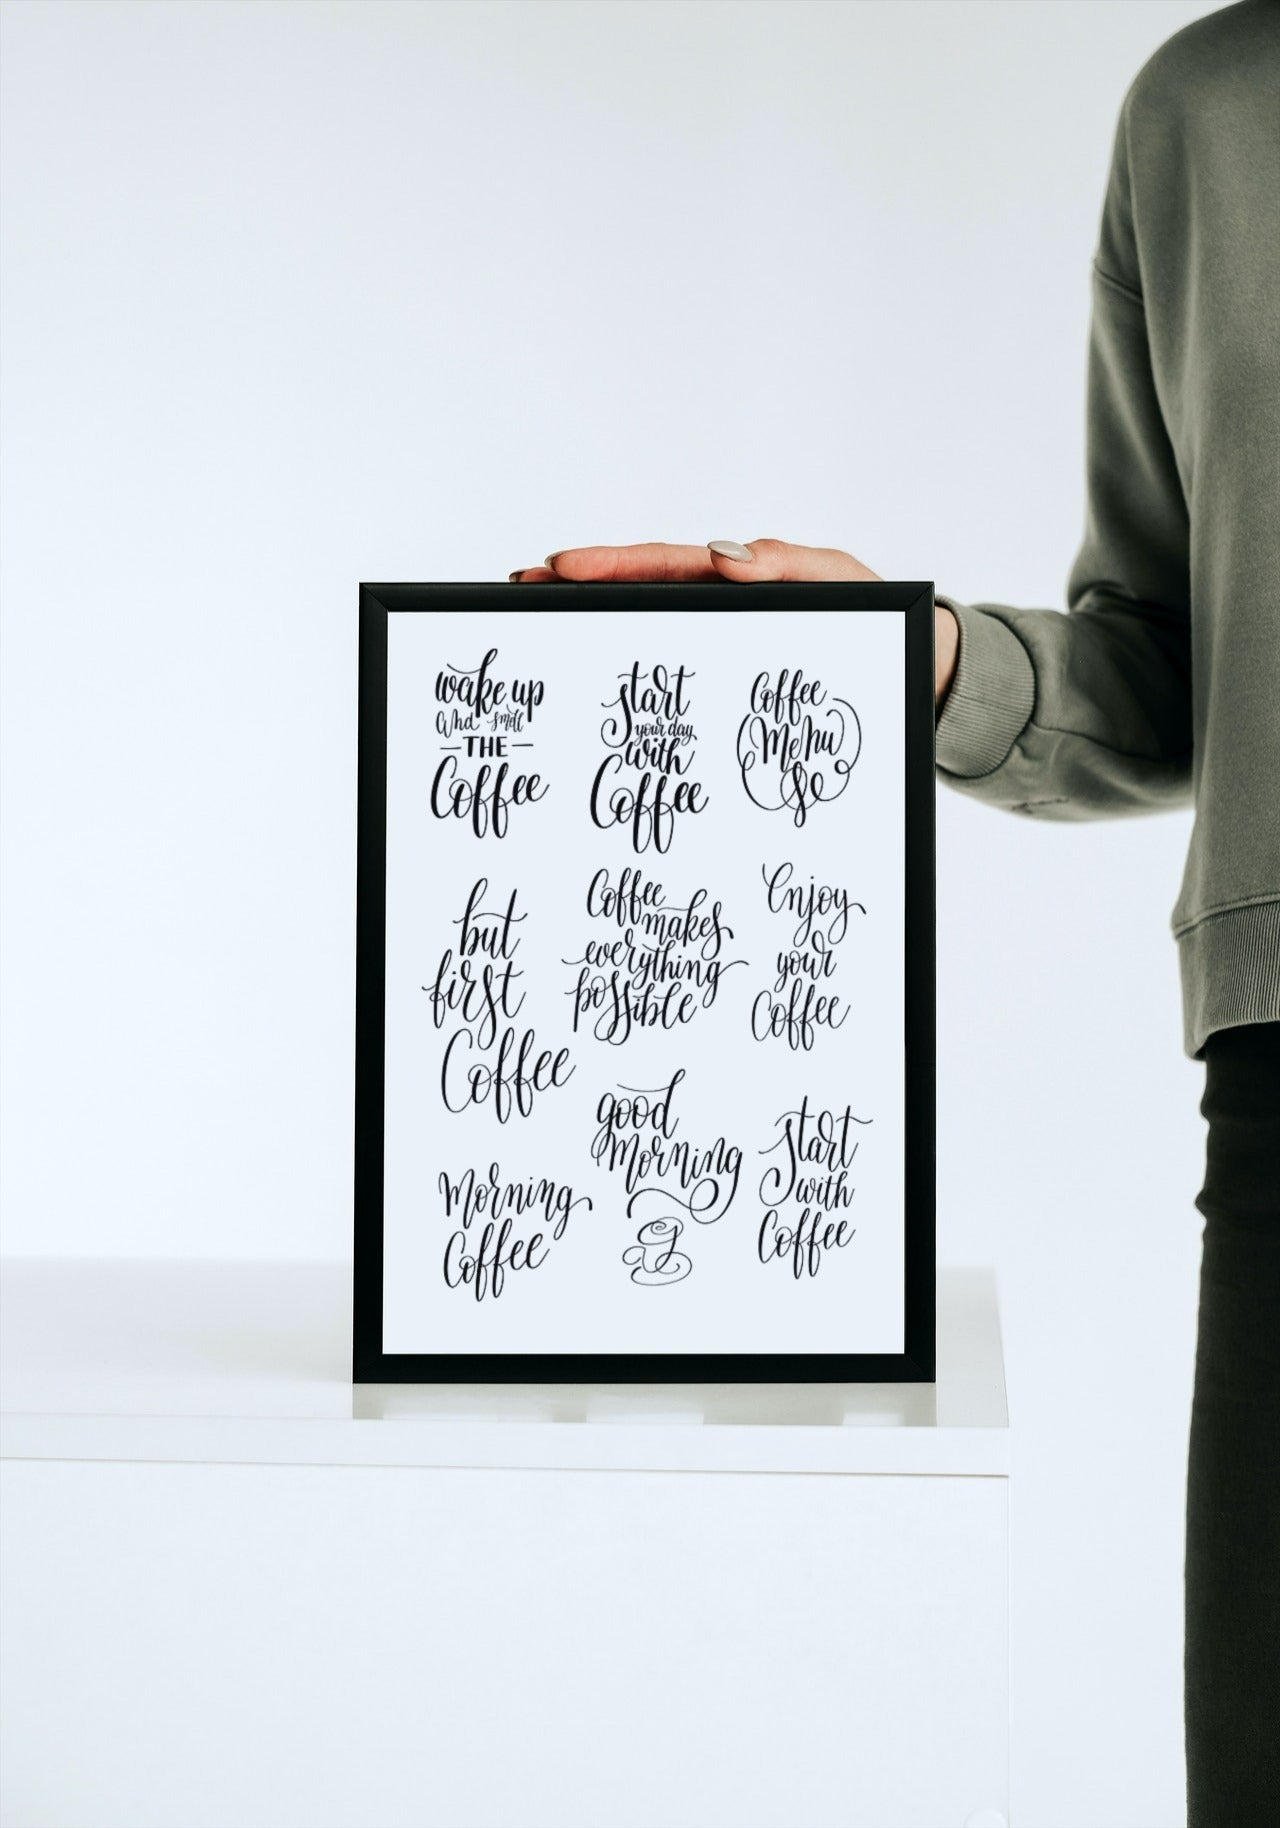 wake up
and smell
THE
Coffee
start
your day
with
Coffee
Coffee
Menu
but
first
Coffee
Coffee
makes
everything
possible
Enjoy
your
Coffee
Morning
Coffee
good
Morning
start
with
Coffee